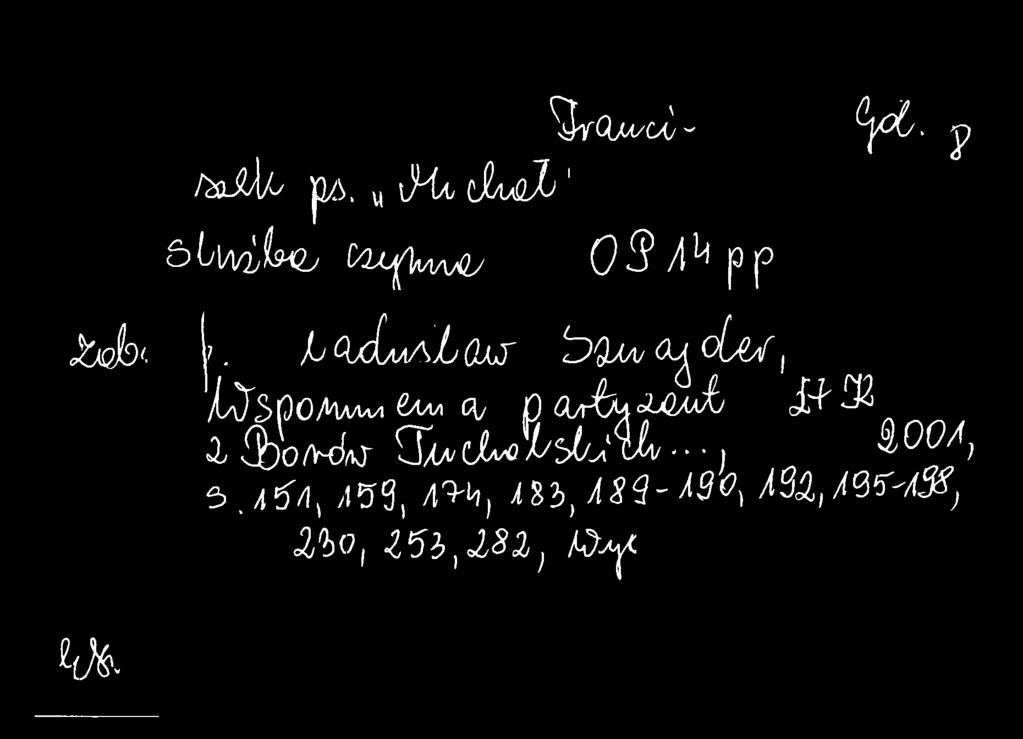 Franci- Gd. 8
szek ps. „Michał"
służba czynna OP 14 pp
zob. ładysław Sznajder,
Wspomnienia partyzant
z Borów Tucholskich..., 2001,
s. 151, 159, 174, 183, 189-190, 192, 195-198,
230, 253, 282,